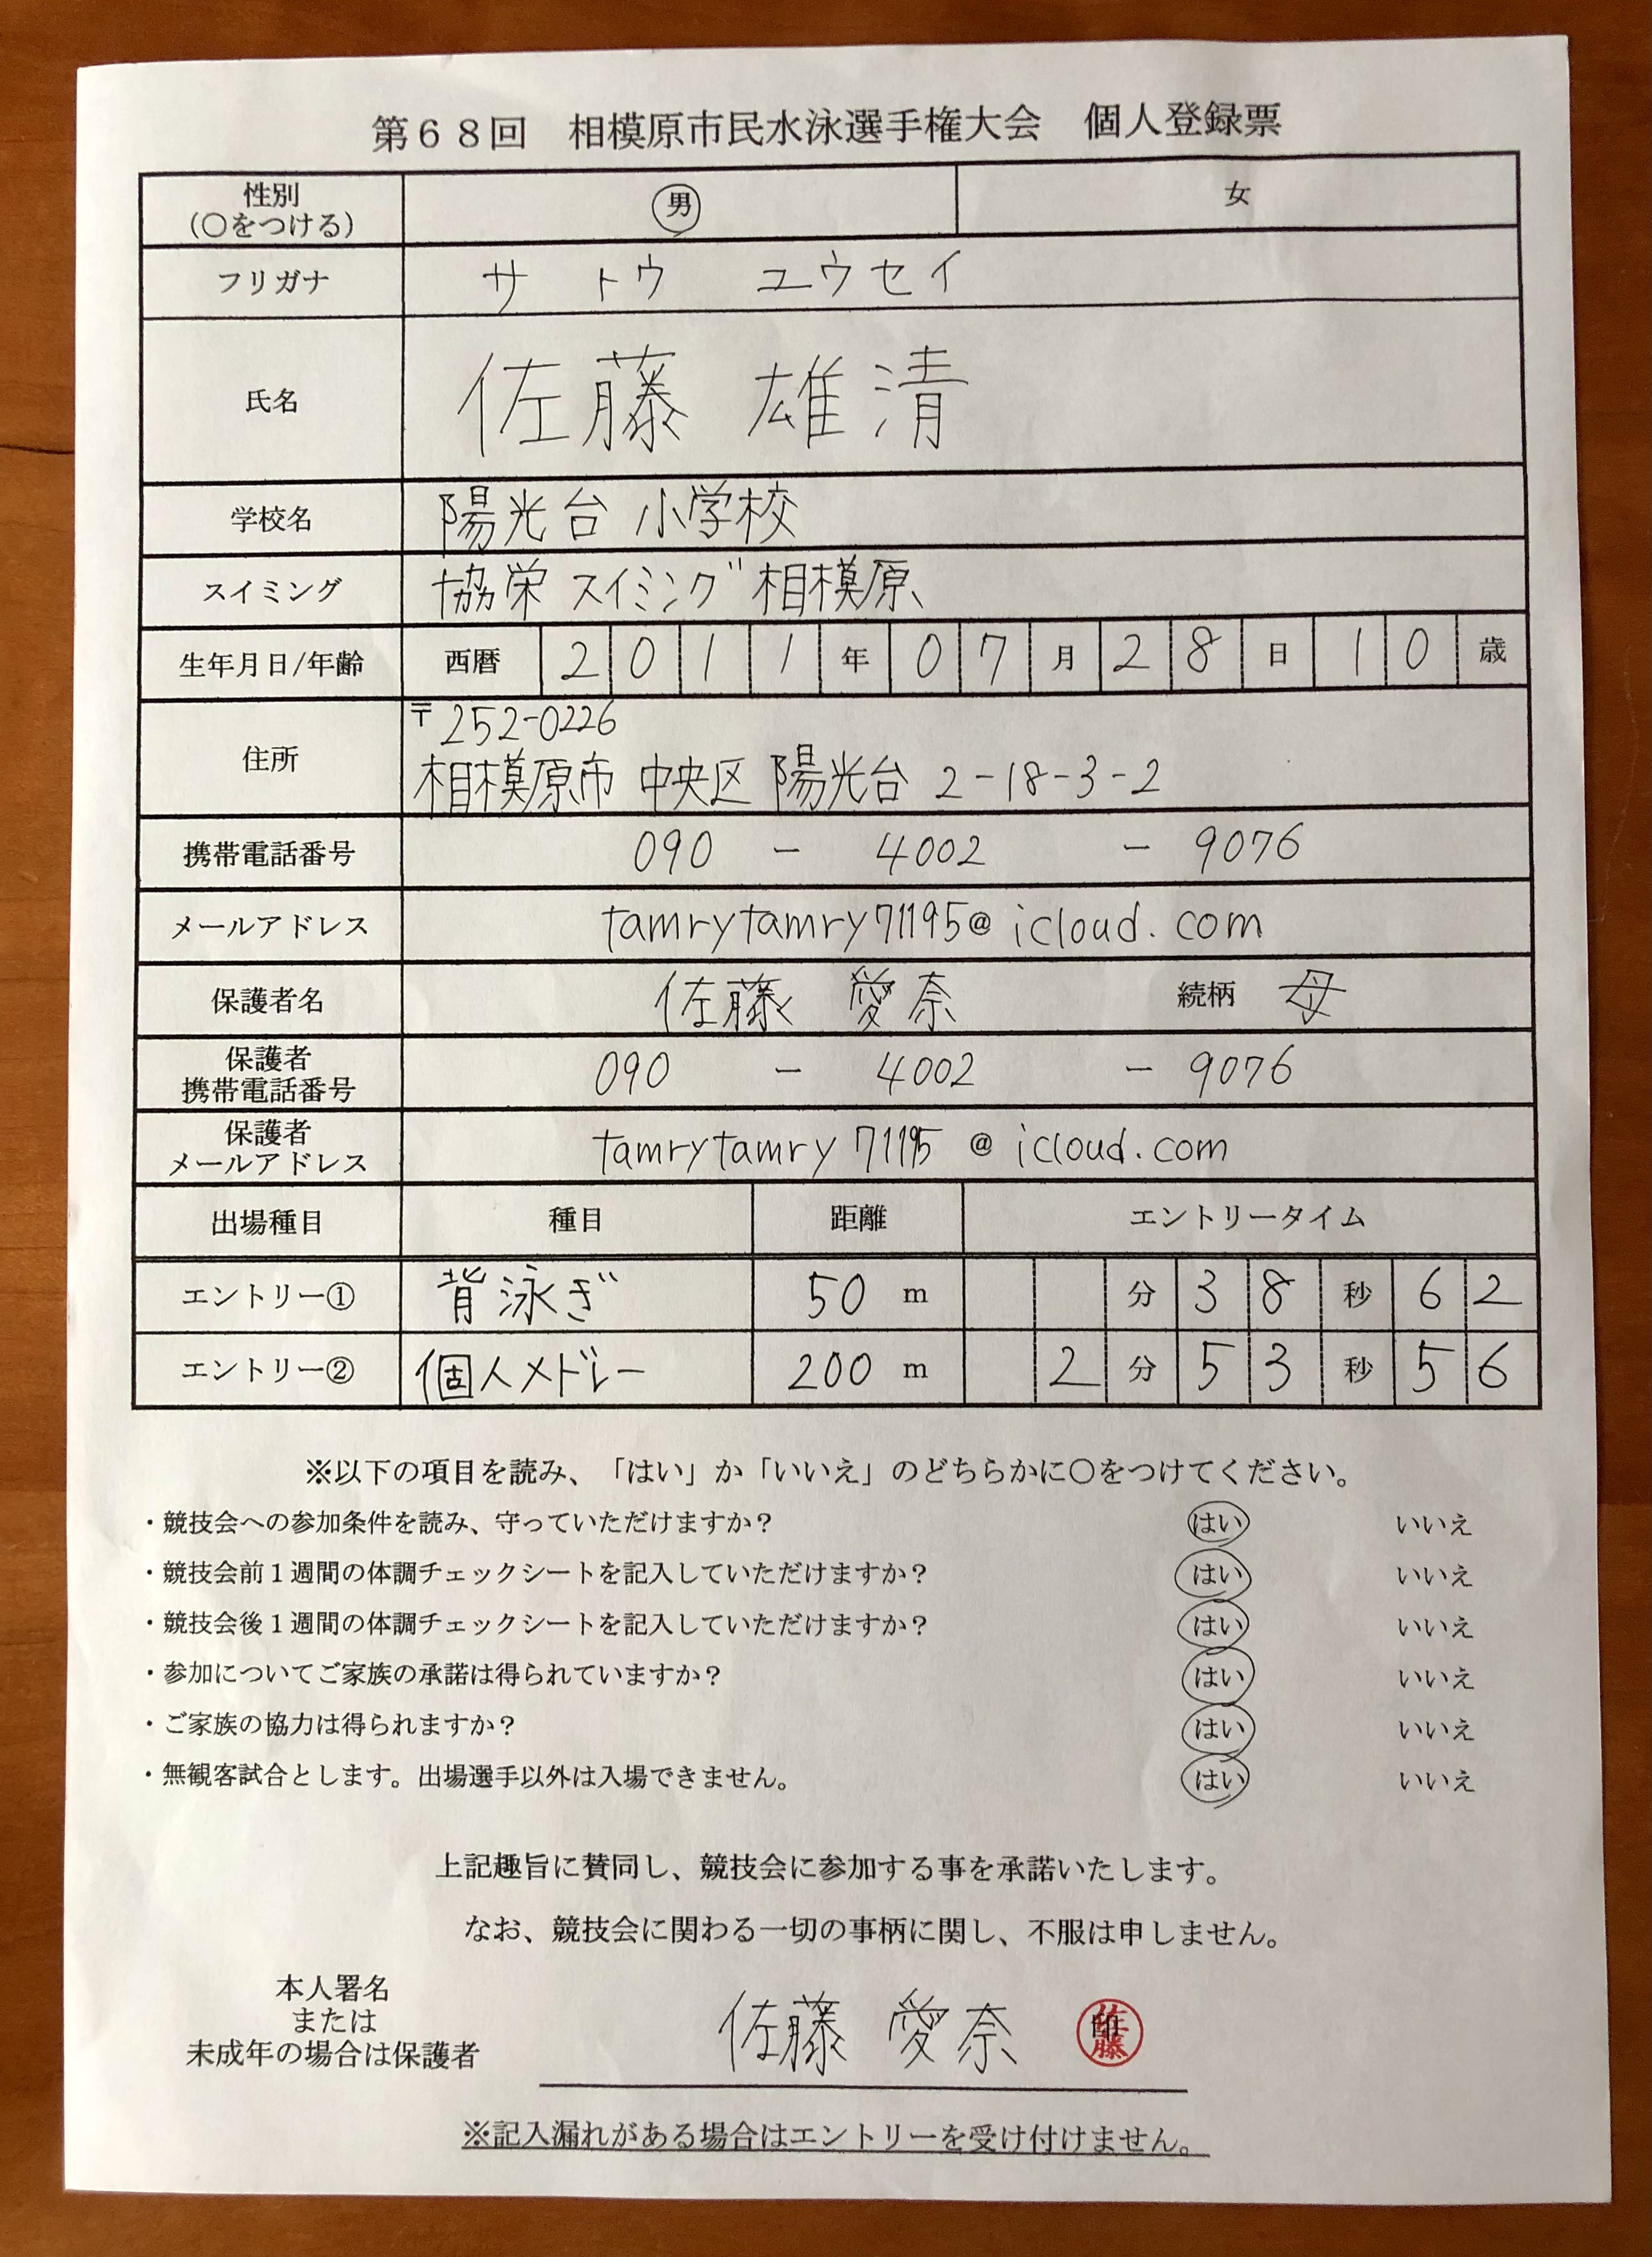 第６８回　相模原市民水泳選手権大会　個人登録票
性別
（○をつける） 男 女
フリガナ サトウ ユウセイ
氏名 佐藤 雄清
学校名 陽光台 小学校
スイミング 協栄 スイミング 相模原
生年月日/年齢 西暦 2011 年 07 月 28 日 10 歳
住所 〒252-0226
相模原市 中央区 陽光台 2-18-3-2
携帯電話番号 090 - 4002 - 9076
メールアドレス tamrytamry71195@icloud.com
保護者名 佐藤 愛奈 続柄 母
保護者
携帯電話番号 090 - 4002 - 9076
保護者
メールアドレス tamrytamry71195@icloud.com
出場種目 種目 距離 エントリータイム
エントリー① 背泳ぎ 50 m 分 38 秒 62
エントリー② 個人メドレー 200 m 2 分 53 秒 56
※以下の項目を読み、「はい」か「いいえ」のどちらかに○をつけてください。
・競技会への参加条件を読み、守っていただけますか？ はい いいえ
・競技会前１週間の体調チェックシートを記入していただけますか？ はい いいえ
・競技会後１週間の体調チェックシートを記入していただけますか？ はい いいえ
・参加についてご家族の承諾は得られていますか？ はい いいえ
・ご家族の協力は得られますか？ はい いいえ
・無観客試合とします。出場選手以外は入場できません。 はい いいえ
上記趣旨に賛同し、競技会に参加する事を承諾いたします。
なお、競技会に関わる一切の事柄に関し、不服は申しません。
本人署名
または
未成年の場合は保護者 佐藤 愛奈 印 佐藤
※記入漏れがある場合はエントリーを受け付けません。